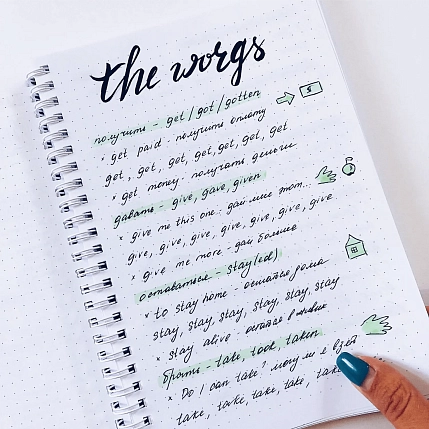 the worgs
получить - get / got / gotten
* get paid - получить оплату
got, got, got, get, get, get, get
* get money - получать деньги
давать - give, gave, given
* give me this one - дай мне этот...
give, give, give, give, give, give, give
* give me more - дай больше
оставаться - stay(ed)
* to stay home - остаться дома
stay, stay, stay, stay, stay, stay
* stay alive - остаться в живых
брать - take, took, taken
* Do I can take? могу ли я взять
take, take, take, take, take